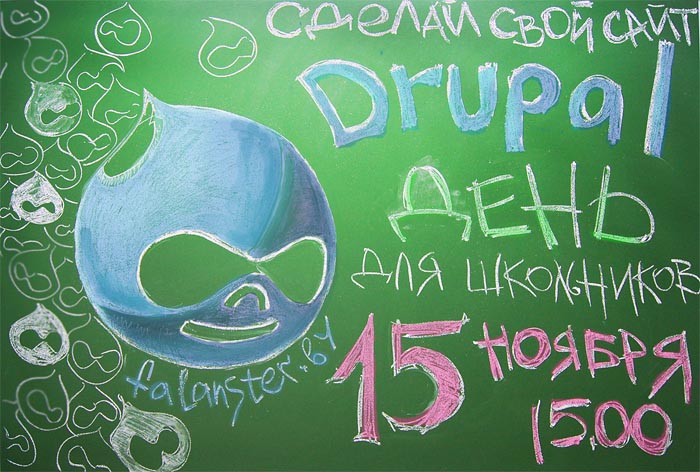 СДЕЛАЙ СВОЙ САЙТ
Drupal
ДЕНЬ
ДЛЯ ШКОЛЬНИКОВ
15 НОЯБРЯ
15.00
falanster.by